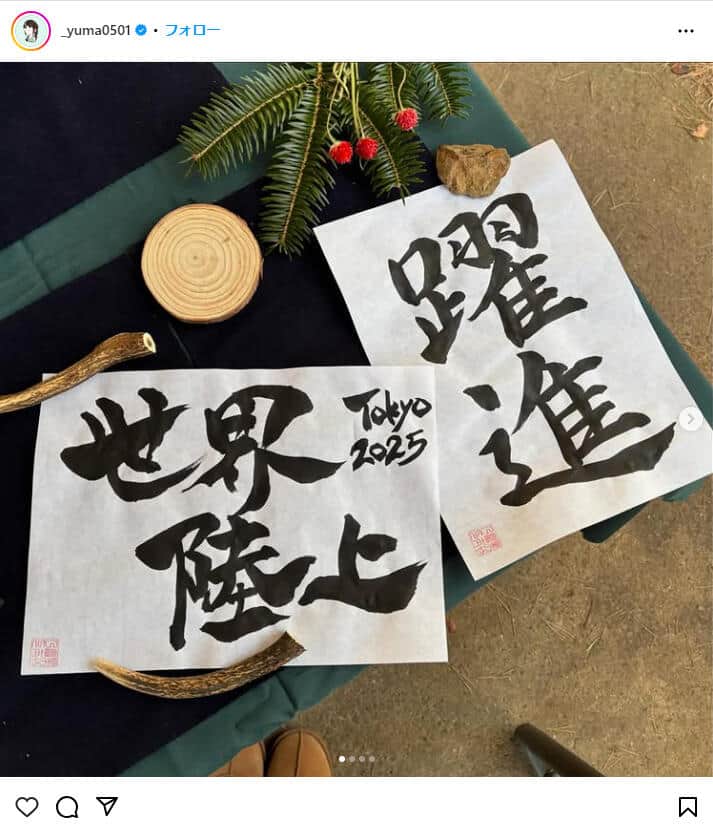 _yuma0501 • フォロー
世界
Tokyo
2025
陸上
躍
進